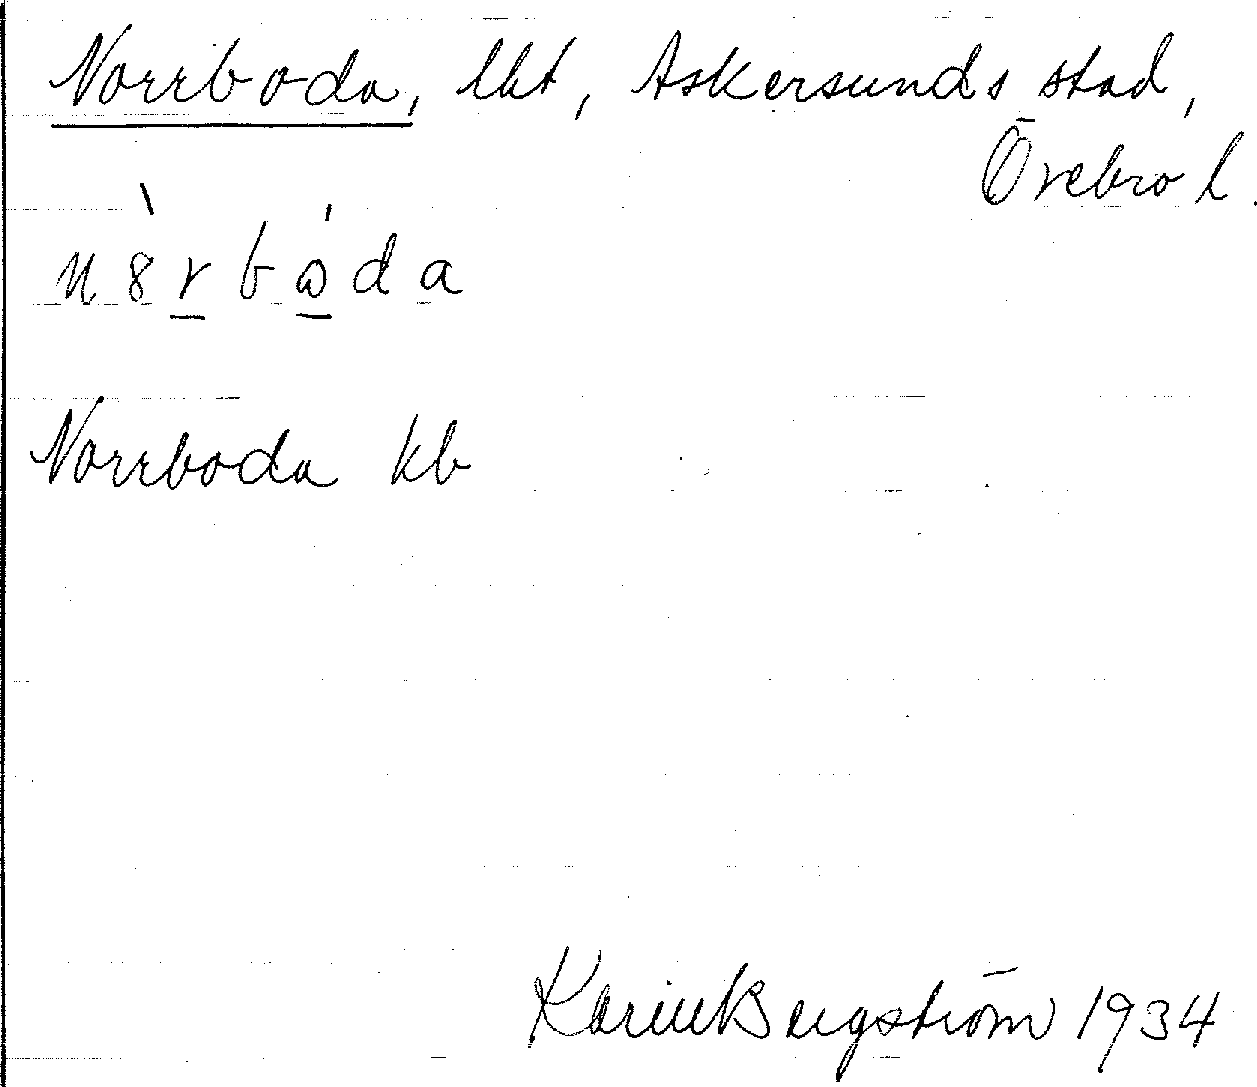 Norrboda, lht, Askersunds stad,
Örebro l.
n8̀rbɷ́da
Norrboda kb
Karin Bergström 1934